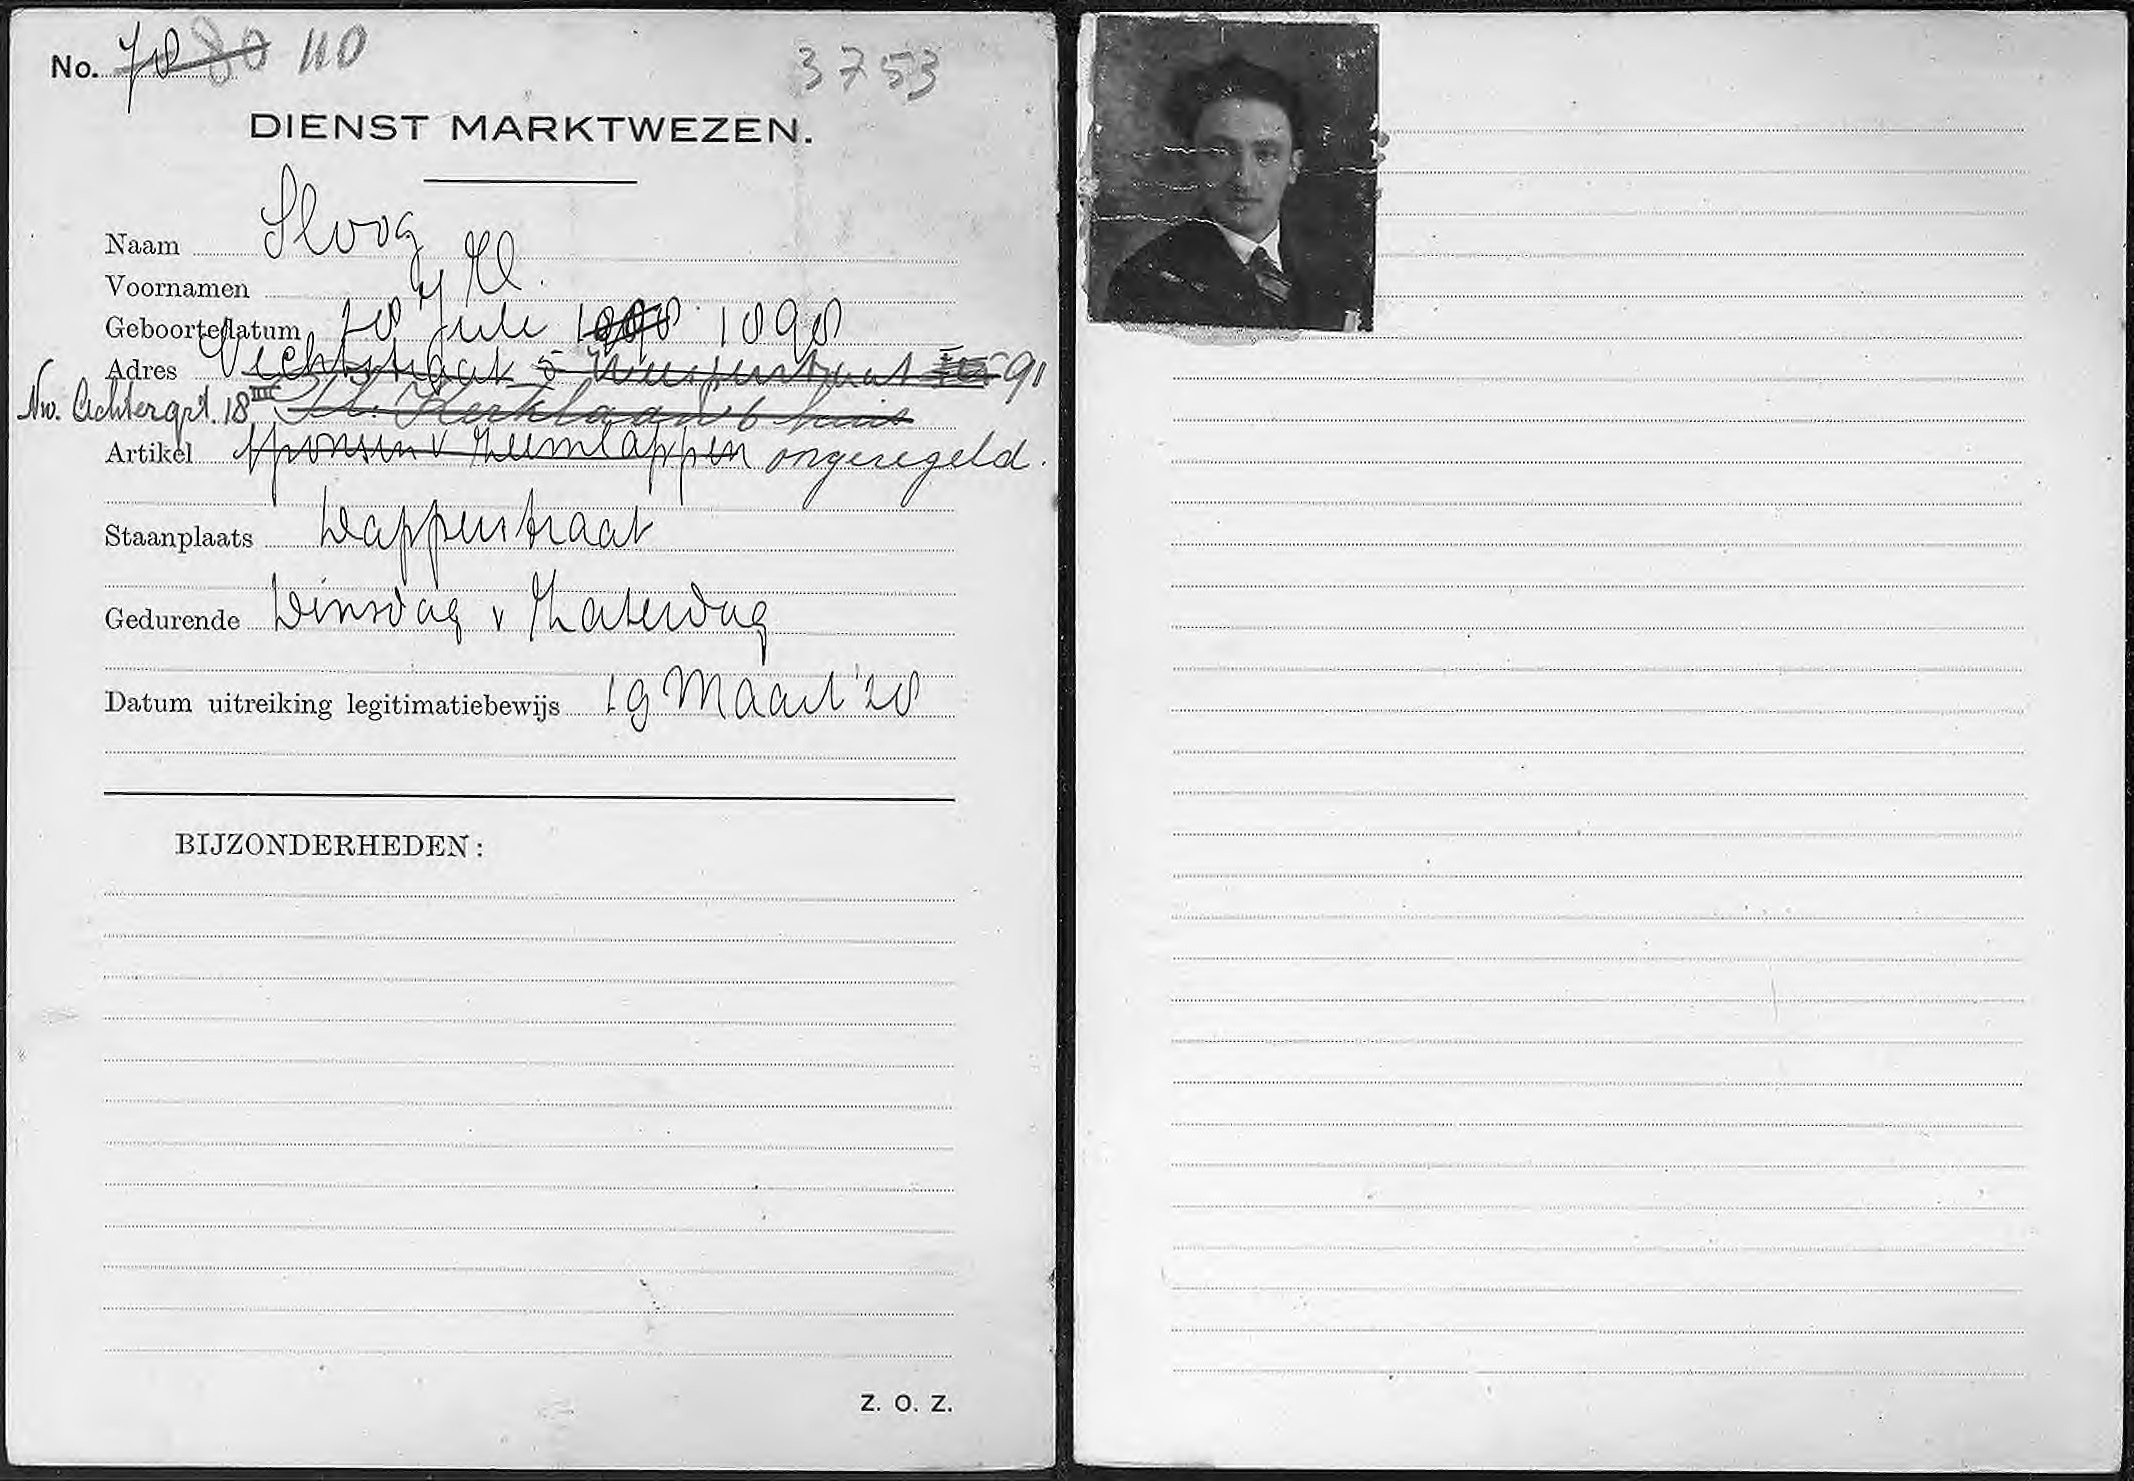 No. 78 80 110 3753
DIENST MARKTWEZEN.
Naam Sloog
Voornamen M.
Geboortedatum 28 Juli 1898
Adres Vechtstraat 5 Weesperstraat 91
Nw. Achtergrt. 18 III Pl. Kerklaan 6 huis
Artikel Sponsen v Zeemlappen ongeregeld.
Staanplaats Dapperstraat
Gedurende Dinsdag v Zaterdag
Datum uitreiking legitimatiebewijs 19 Maart '28
BIJZONDERHEDEN:
Z. O. Z.